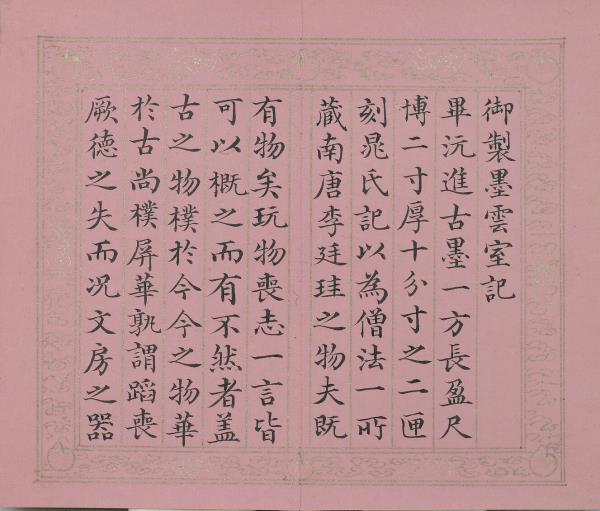 御製墨雲室記
畢沅進古墨一方長盈尺
博二寸厚十分寸之二匣
刻晁氏記以為僧法一所
蔵南唐李廷珪之物夫既
有物矣玩物喪志一言皆
可以概之而有不然者盖
古之物樸於今今之物華
於古尚樸屏華孰謂蹈喪
厥德之失而况文房之器